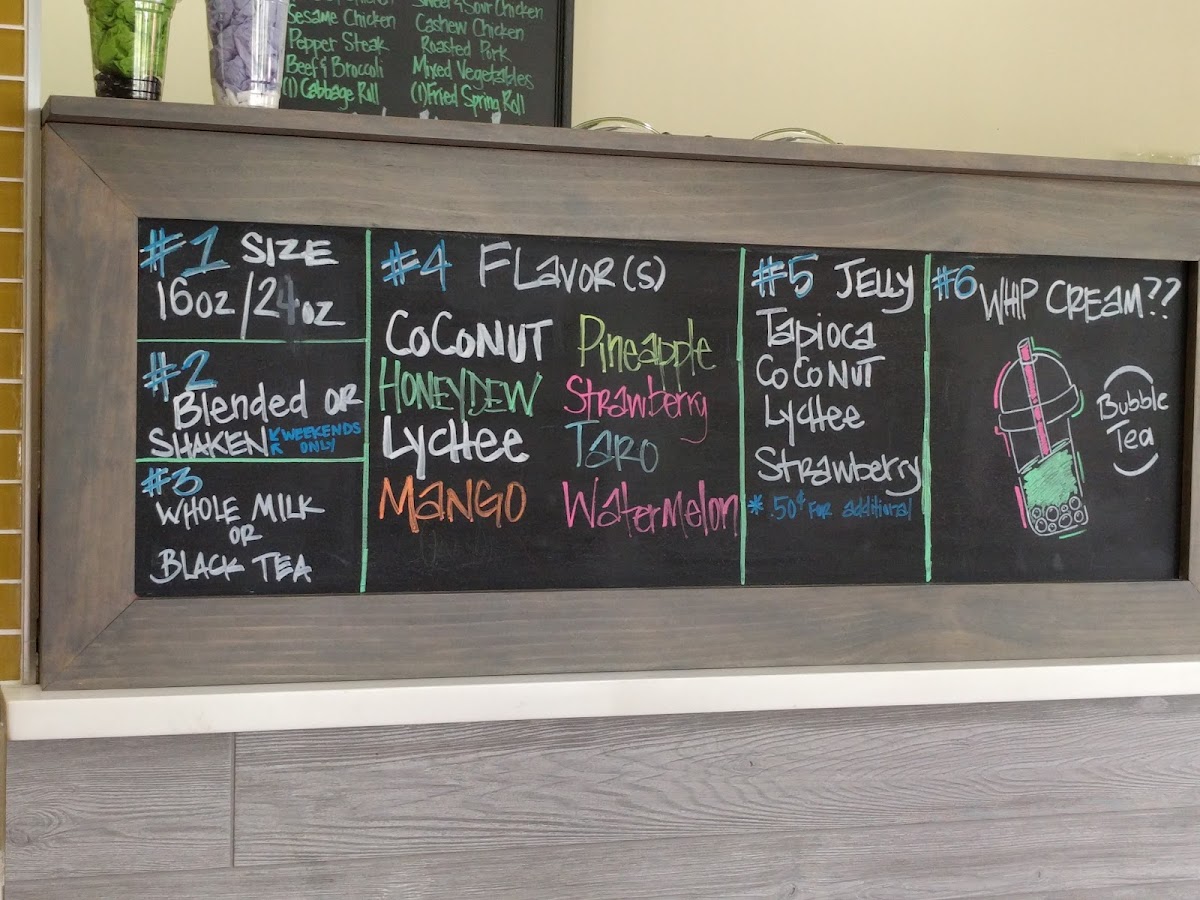 Sesame Chicken
Pepper Steak
Beef & Broccoli
(1) Cabbage Roll
Sweet & Sour Chicken
Cashew Chicken
Roasted Pork
Mixed Vegetables
(1) Fried Spring Roll
#1 SIZE
16oz / 24oz
#2
Blended or
SHAKEN WEEKENDS
ONLY
#3
WHOLE MILK
OR
BLACK TEA
#4 FLavor(s)
COCONUT
HONEYDEW
LycHee
MANGO
Pineapple
Strawberry
TARO
WaterMelon
#5 JELLY
Tapioca
COCONUT
LycHee
Strawberry
* .50¢ FOR additional
#6 WHIP CREAM??
Bubble
Tea